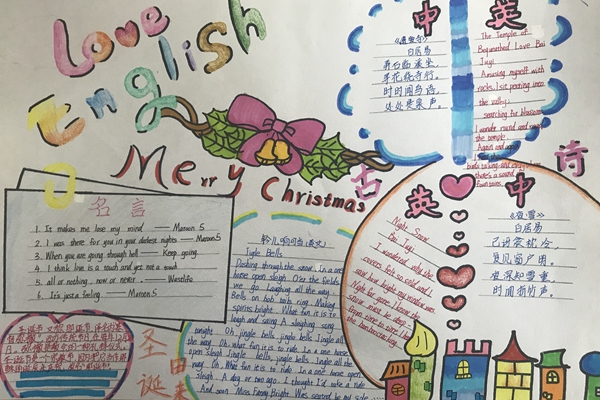 Love
English
Merry Christmas
中 英
《遗爱寺》
白居易
弄石临溪坐,
寻花绕寺行。
时时闻鸟语,
处处是泉声。
The Temple of
Bequeathed Love Bai
Juyi
Amusing myself with
rocks, I sit peering into
the valley;
searching for blossoms
I wander round and
the temple.
Again and again
birds talking, and
there's a sound
fountains.
古
诗
英 中
Night Snow
Bai Juyi
I wondered why the
covers felt so cold, and I
saw how bright my window was
Night far gone, I know the
snow must be deep
from time to time I
the bamboo
《夜雪》
白居易
已讶衾枕冷,
复见窗户明。
夜深知雪重,
时闻折竹声。
名言
1. It makes me lose my mind —— Maroon 5
2. I was there for you in your darkest nights —— Maroon 5
3. When you are going through hell —— Keep going.
4. I think love is a touch and yet not a touch
5. all or nothing, now or never. —— Wastelife
6. It's just a feeling —— Maroon 5
铃儿响叮当(英文)
Jingle Bells
Dashing through the snow, In a one
horse open sleigh, O'er the fields
we go, Laughing all the way;
Bells on bob tails ring, Making
spirits bright, What fun it is to
laugh and sing A sleighing song
tonight. Oh, jingle bells, jingle bells, Jingle all
the way. Oh, what fun it is to ride, In a one horse
open sleigh. Jingle bells, jingle bells, Jingle all the
way. Oh, What fun it is to ride, In a one horse open
sleigh. A day or two ago, I thought I'd take a ride
And soon Miss Fanny Bright, Was seated by my side
圣
诞
由
来